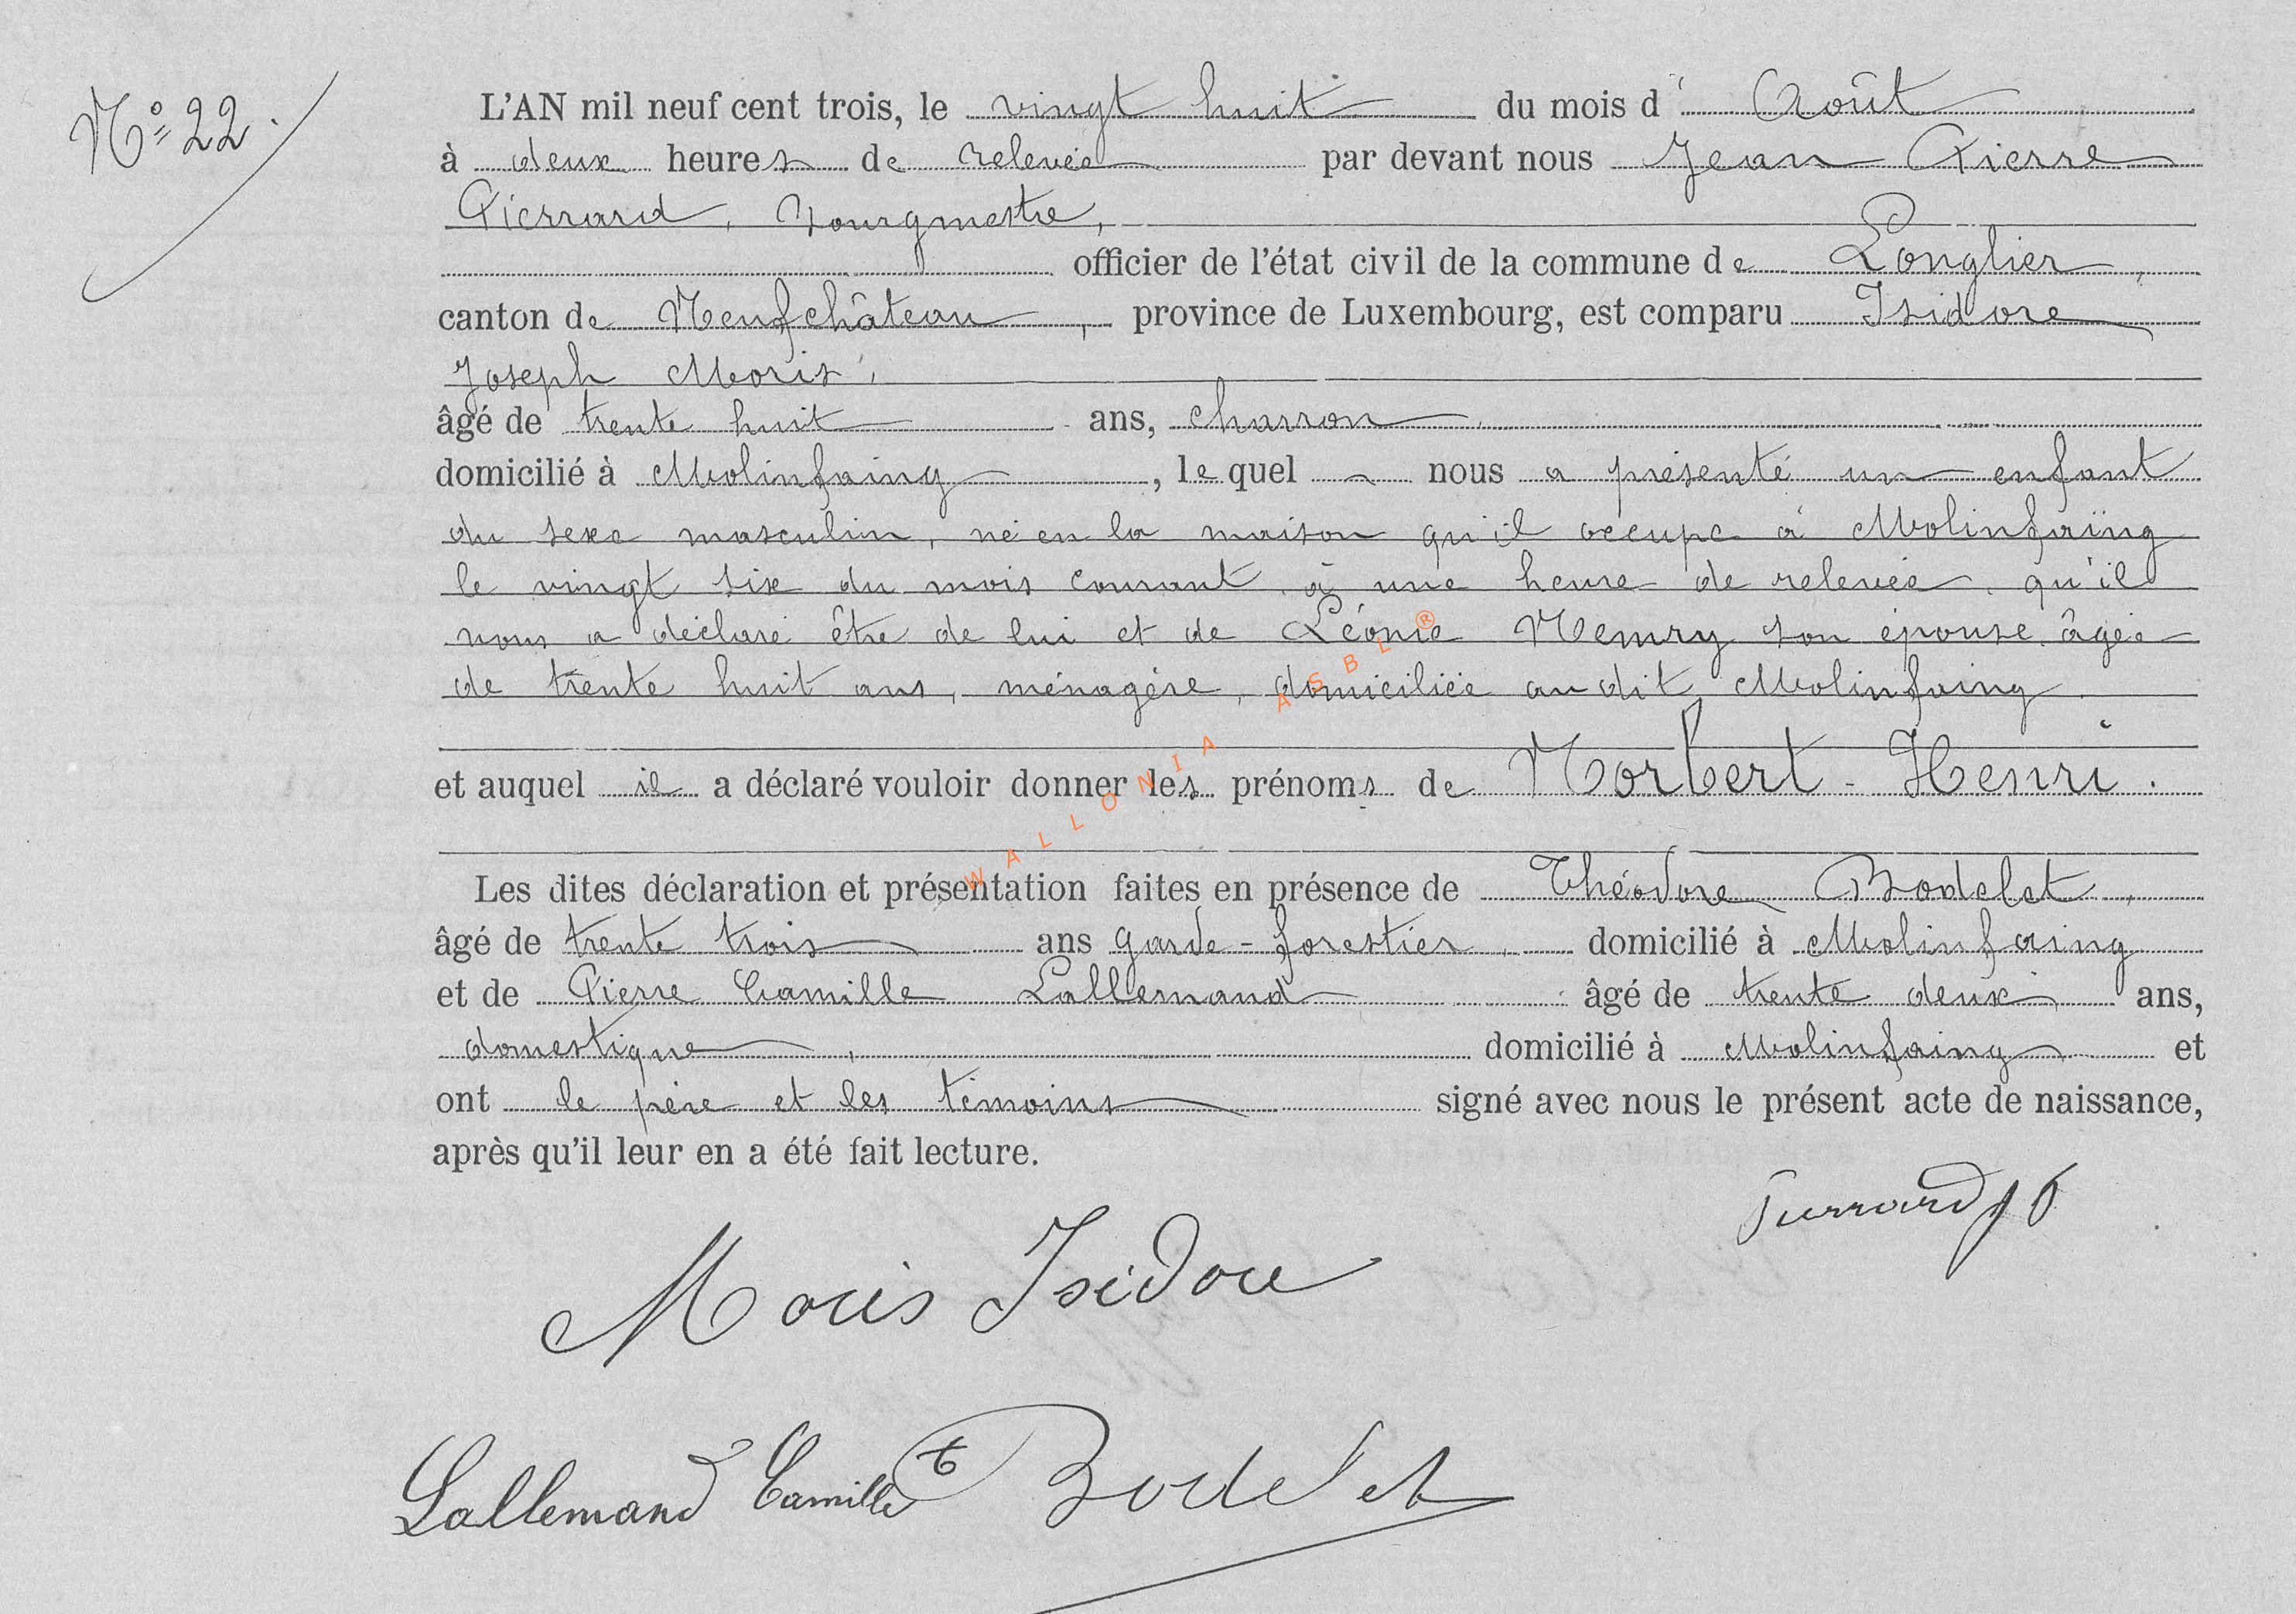 N° 22.
L'AN mil neuf cent trois, le vingt huit du mois d' Août
à deux heures de relevée par devant nous Jean Pierre
Pierrard, bourgmestre,
officier de l'état civil de la commune de Longlier,
canton de Neufchâteau, province de Luxembourg, est comparu Isidore
Joseph Moris,
âgé de trente huit ans, charron
domicilié à Molinfaing, lequel nous a présenté un enfant
du sexe masculin, né en la maison qu'il occupe à Molinfaing
le vingt six du mois courant à une heure de relevée, qu'il
nous a déclaré être de lui et de Léonie Nemry son épouse âgée
de trente huit ans, ménagère, domiciliée au dit Molinfaing.
et auquel il a déclaré vouloir donner les prénoms de Norbert-Henri.
Les dites déclaration et présentation faites en présence de Théodore Bodelet,
âgé de trente trois ans garde-forestier, domicilié à Molinfaing
et de Pierre Camille Lallemand âgé de trente deux ans,
domestique, domicilié à Molinfaing et
ont le père et les témoins signé avec nous le présent acte de naissance,
après qu'il leur en a été fait lecture.
Pierrard JP
Moris Isidore
Lallemand Camille t Bodelet
WALLONIA ASBL ®